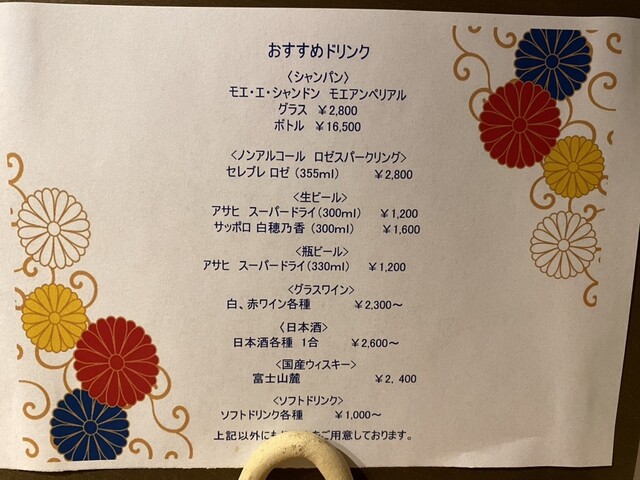 おすすめドリンク
〈シャンパン〉
モエ・エ・シャンドン モエアンペリアル
グラス ￥2,800
ボトル ￥16,500
<ノンアルコール ロゼスパークリング>
セレブレ ロゼ （355ml） ￥2,800
<生ビール>
アサヒ スーパードライ（300ml） ￥1,200
サッポロ 白穂乃香 （300ml） ￥1,600
<瓶ビール>
アサヒ スーパードライ（330ml） ￥1,200
<グラスワイン>
白、赤ワイン各種 ￥2,300～
〈日本酒〉
日本酒各種 1合 ￥2,600～
<国産ウィスキー>
富士山麓 ￥2，400
<ソフトドリンク>
ソフトドリンク各種 ￥1,000～
上記以外にも ご用意しております。